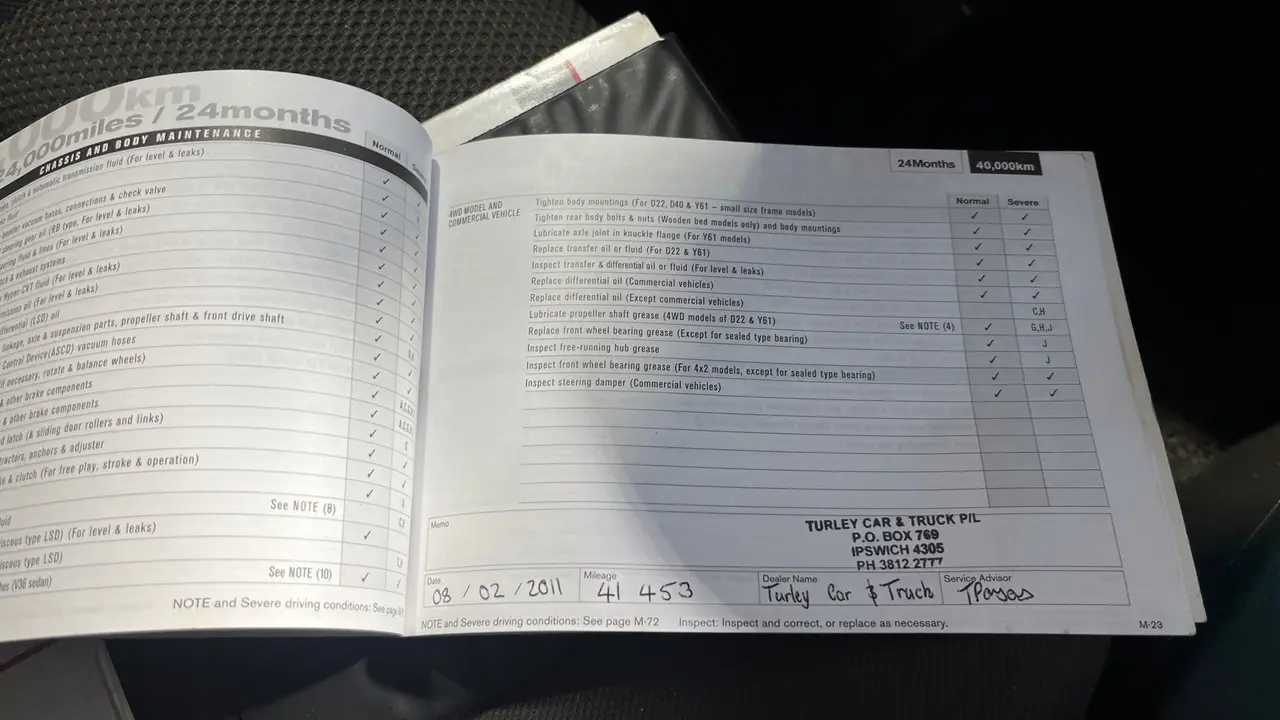 000km
24,000miles / 24months
CHASSIS AND BODY MAINTENANCE
Normal
clutch & automatic transmission fluid (For level & leaks)
fluid
vacuum hoses, connections & check valve
steering gear oil (RB type, For level & leaks)
fluid & lines (For level & leaks)
& exhaust systems
Hyper-CVT fluid (For level & leaks)
oil (For level & leaks)
(LSD) oil
linkage, axle & suspension parts, propeller shaft & front drive shaft
Control Device(ASCD) vacuum hoses
necessary, rotate & balance wheels)
& other brake components
& other brake components
latch (& sliding door rollers and links)
anchors & adjuster
& clutch (For free play, stroke & operation)
See NOTE (8)
type LSD) (For level & leaks)
type LSD)
(V36 sedan) See NOTE (10)
NOTE and Severe driving conditions: See page
24Months 40,000km
Normal Severe
4WD MODEL AND
COMMERCIAL VEHICLE
Tighten body mountings (For D22, D40 & Y61 – small size frame models) ✓ ✓
Tighten rear body bolts & nuts (Wooden bed models only) and body mountings ✓ ✓
Lubricate axle joint in knuckle flange (For Y61 models) ✓ ✓
Replace transfer oil or fluid (For D22 & Y61) ✓ ✓
Inspect transfer & differential oil or fluid (For level & leaks) ✓ ✓
Replace differential oil (Commercial vehicles) ✓ ✓
Replace differential oil (Except commercial vehicles) C,H
Lubricate propeller shaft grease (4WD models of D22 & Y61) See NOTE (4) ✓ G,H,J
Replace front wheel bearing grease (Except for sealed type bearing) ✓ J
Inspect free-running hub grease ✓ J
Inspect front wheel bearing grease (For 4x2 models, except for sealed type bearing) ✓ ✓
Inspect steering damper (Commercial vehicles) ✓ ✓
Memo
TURLEY CAR & TRUCK P/L
P.O. BOX 769
IPSWICH 4305
PH 3812 2777
Date Mileage Dealer Name Service Advisor
08 / 02 / 2011 41 453 Turley Car & Truck
NOTE and Severe driving conditions: See page M-72 Inspect: Inspect and correct, or replace as necessary.
M-23